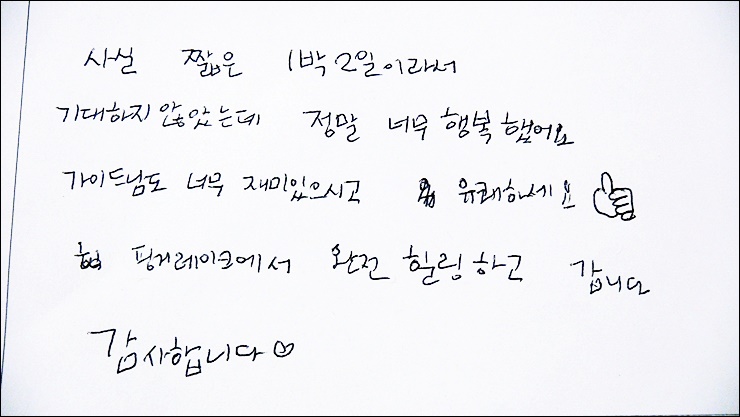 사실 짧은 1박 2일이라서
기대하지 않았는데 정말 너무 행복했어요
가이드님도 너무 재미있으시고 유쾌하세요
핑거레이크에서 완전 힐링하고 갑니다
감사합니다♡